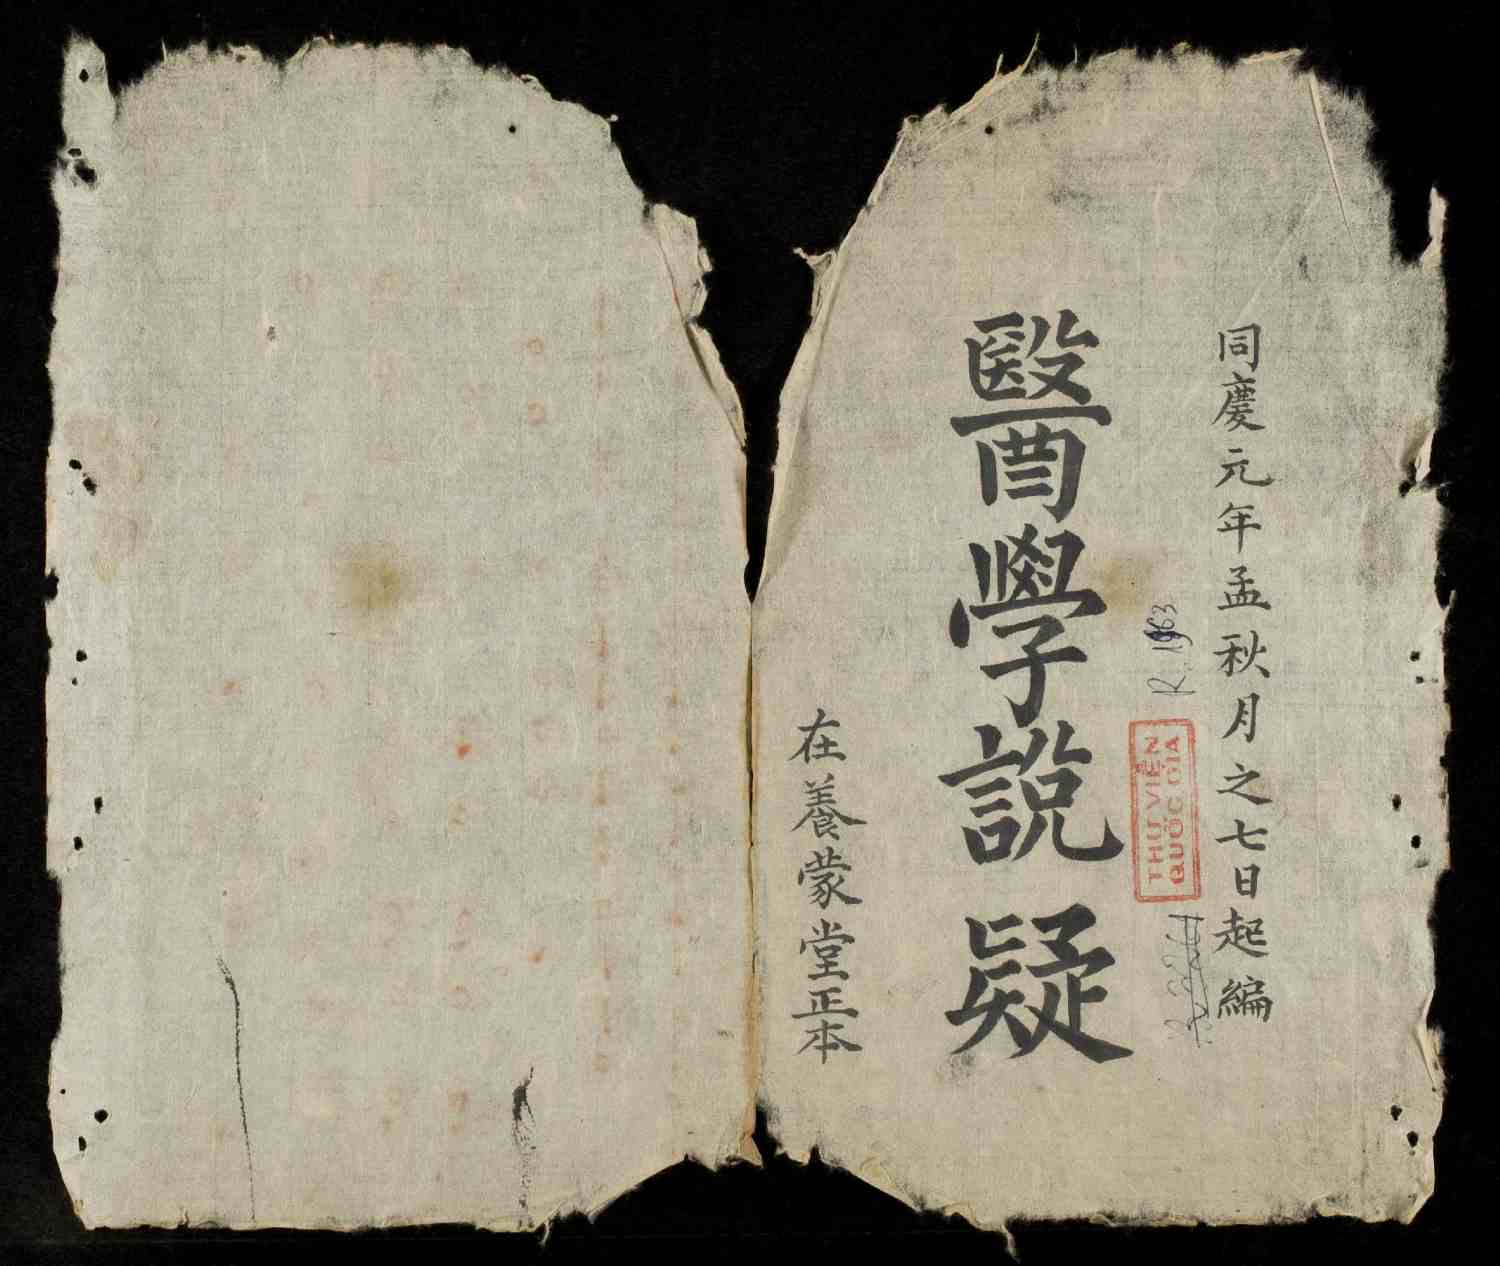 同慶元年孟秋月之七日起編
R.1963
THƯ VIỆN
QUỐC GIA
醫學說疑
在養蒙堂正本